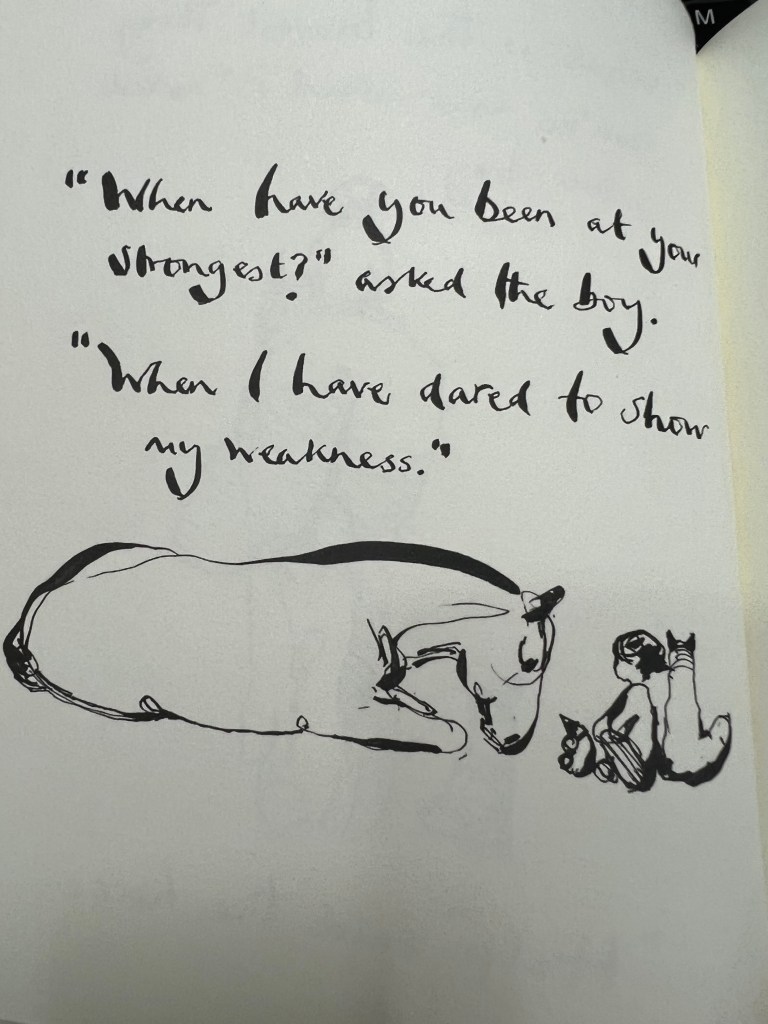 "When have you been at your
strongest?" asked the boy.
"When I have dared to show
my weakness."
M